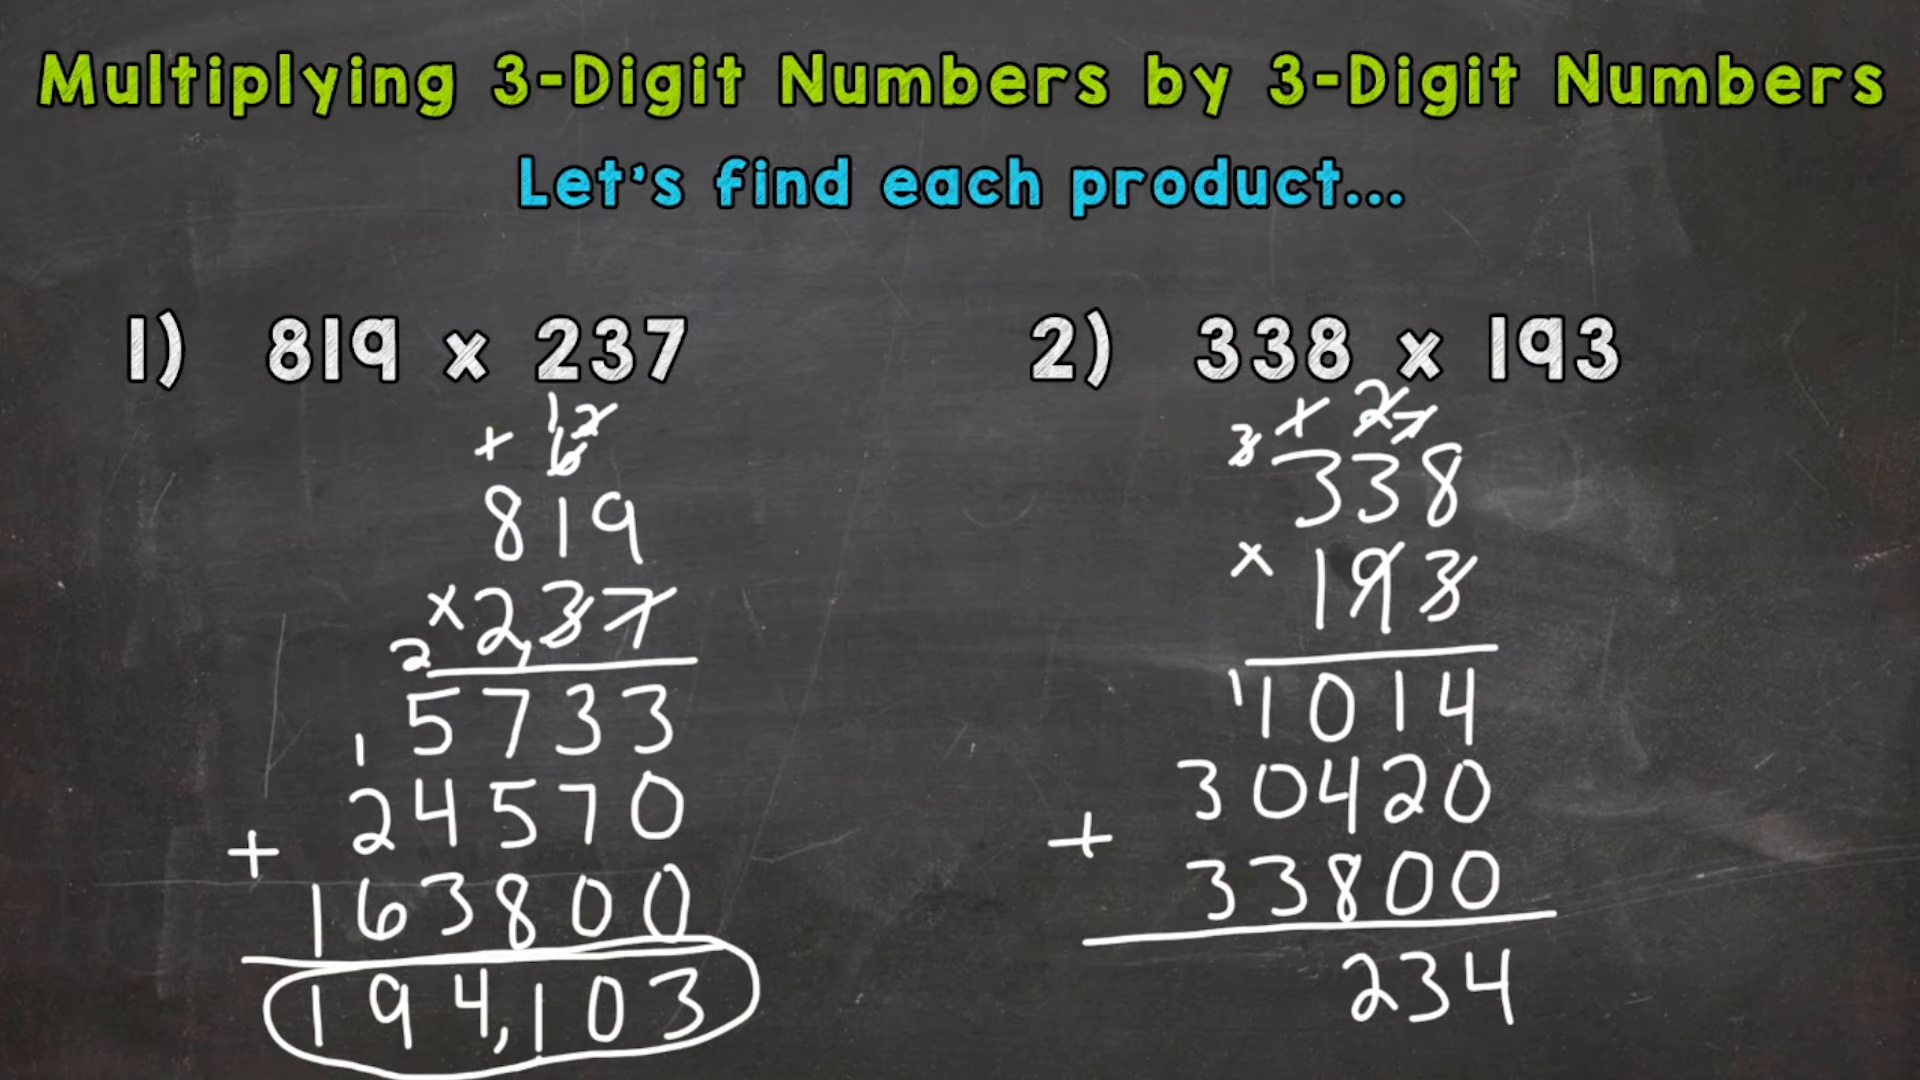 Multiplying 3-Digit Numbers by 3-Digit Numbers
Let's find each product...
1) 819 x 237
1 2
+ 6
819
x 2,37
2
5733
1
24570
+
163800
194,103
2) 338 x 193
1 2 7
3
338
x 193
1
1014
30420
+
33800
234